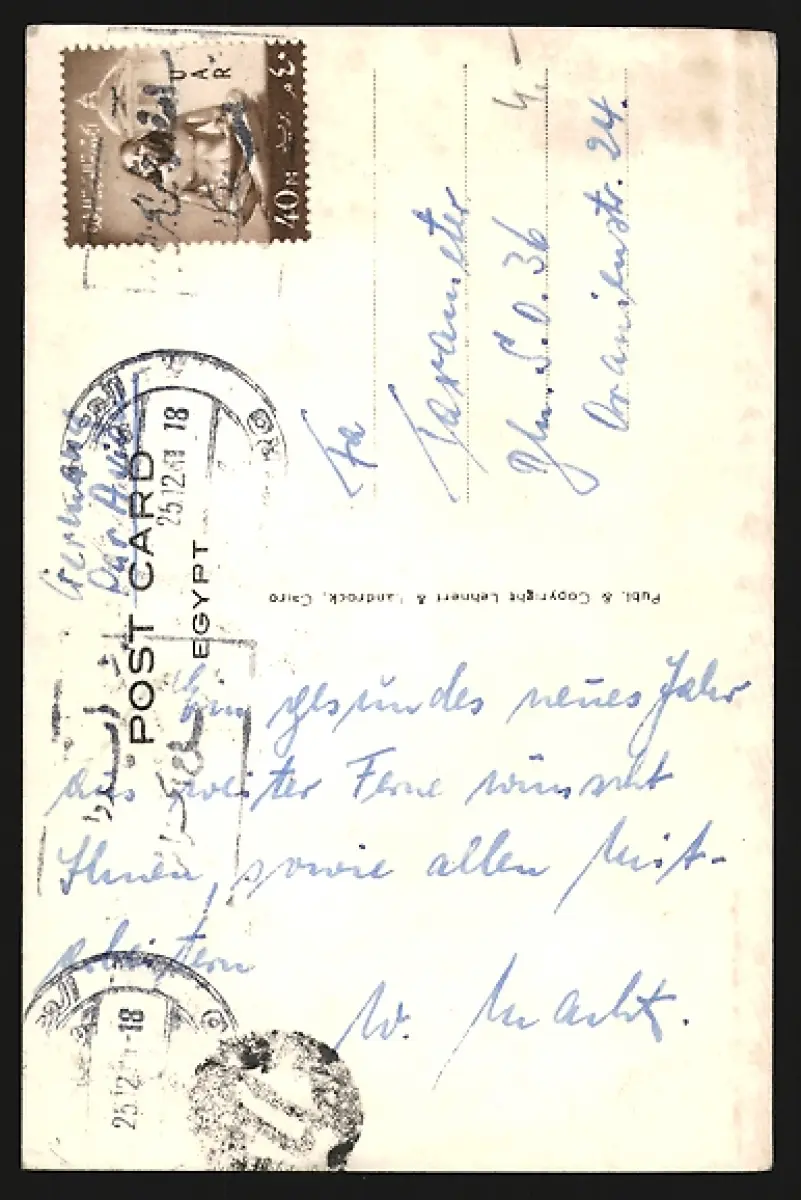 UAR
40 M
POST CARD
EGYPT
Germany
Par Avion
25.12.61 18
Fa
Taxameter
Bln. S.O. 36
Oranienstr. 24.
Publ. & Copyright Lehnert & Landrock, Cairo
Ein gesundes neues Jahr
aus weiter Ferne wünscht
Ihnen, sowie allen Mit-
arbeitern
W. Macht.
25.12 18